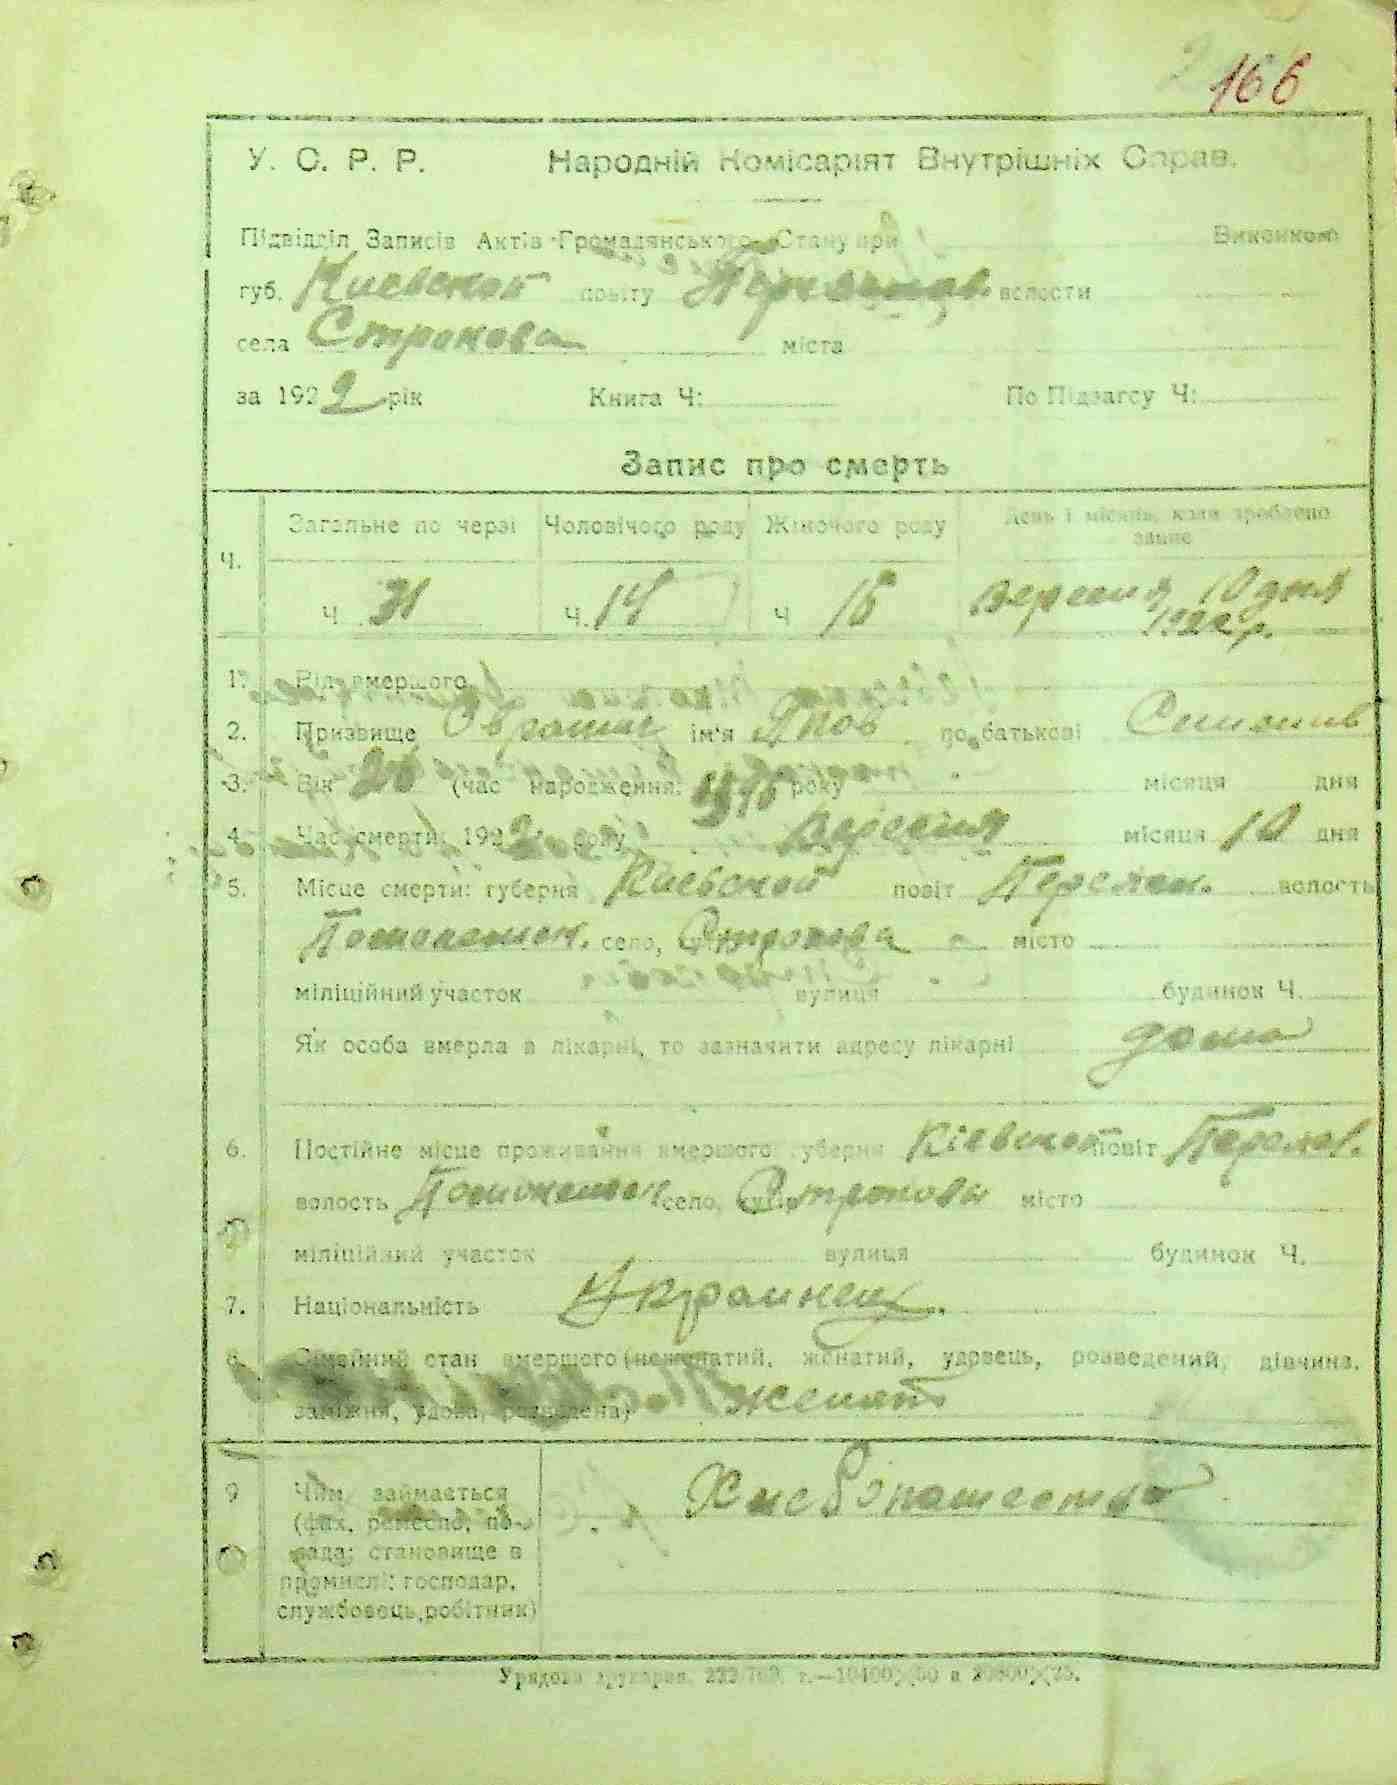 166
У. С. Р. Р. Народній Комісаріят Внутрішніх Справ.
Підвідділ Записів Актів Громадянського Стану при Виконком
губ. Киевской повіту волости
села Строкова міста
за 1922 рік Книга Ч: По Підзагсу Ч:
Запис про смерть
Ч. Загальне по черзі Чоловічого роду Жіночого роду День і місяць, коли зроблено запис
Ч. 31 Ч. 14 Ч вересня 10 дня
1922 р.
1. Рід вмершого
2. Призвище ім'я Яков по батькові
3. Вік 26 (час народження: 1896 року місяця дня
4. Час смерти: 1922 року вересня місяця 10 дня
5. Місце смерти: губерня Киевской повіт волость
село, Строкова місто
міліційний участок вулиця будинок Ч.
Як особа вмерла в лікарні, то зазначити адресу лікарні дома
6. Постійне місце проживання вмершого губерня Кіевской повіт
волость село, Строкова місто
міліційний участок вулиця будинок Ч.
7. Національність Украинец.
8. Сімейний стан вмершого (нежонатий, жонатий, удовець, розведений, дівчина,
заміжня, удова, розведена) женат
9 Чим займається Хлебопашество
(фах, ремесло, по-
сада; становище в
промислі: господар,
службовець, робітник)